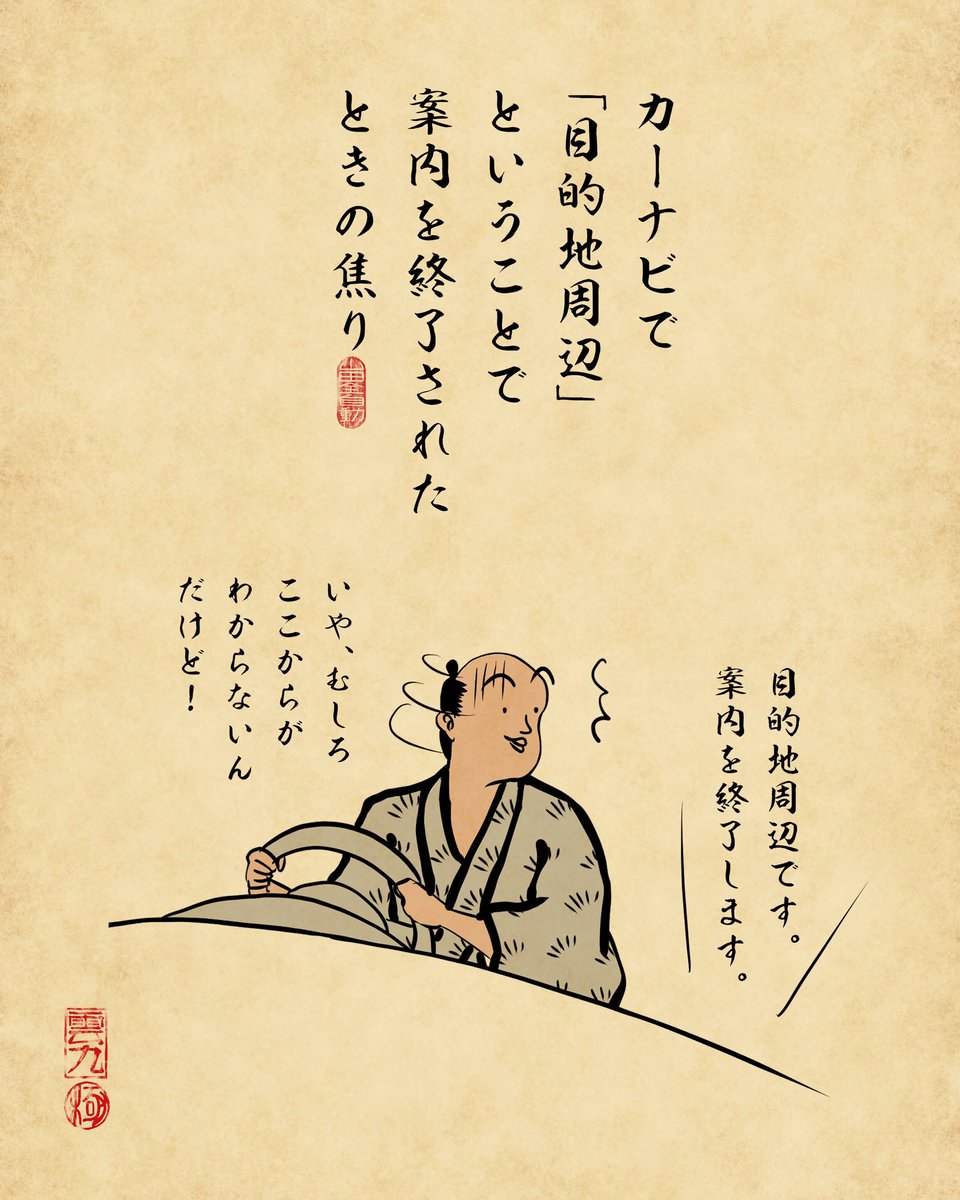 カーナビで
「目的地周辺」
ということで
案内を終了された
ときの焦り
目的地周辺です。
案内を終了します。
いや、むしろ
ここからが
わからないん
だけど！